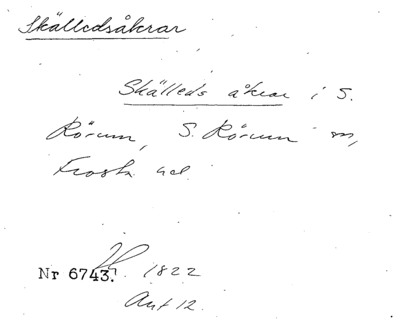 Skälledsåkrar
Skälleds åkrar i S.
Rörum, S. Rörum sn,
Frosta hd.
Nr 6743. 1822
Akt 12.